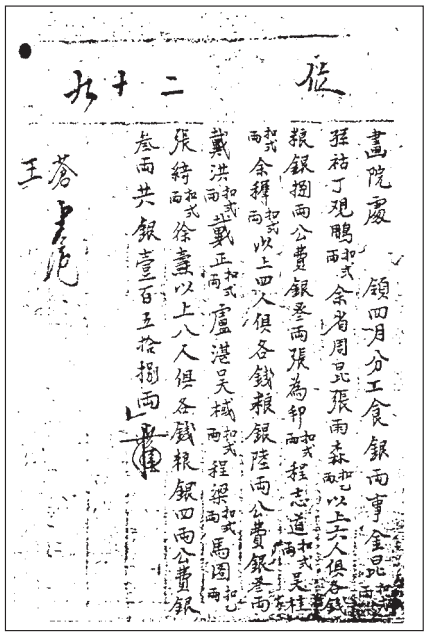 二十九
畫院處 領四月分工食銀兩事金昆扣乙兩
孫祜丁观鵬扣弍兩余省周昆張雨森扣乙兩以上六人俱各錢
粮銀捌兩公費銀叁兩張為邦扣弍兩程志道扣弍兩吴桂
扣弍兩余穉扣弍兩以上四人俱各錢粮銀陸兩公費銀叁兩
戴洪扣弍兩戴正扣弍兩盧湛吴棫扣弍兩程梁扣弍兩馬圖扣乙兩
張綺扣弍兩徐燾以上八人俱各錢粮銀四兩公費銀
叁兩共銀壹百五拾捌兩
蒼
王